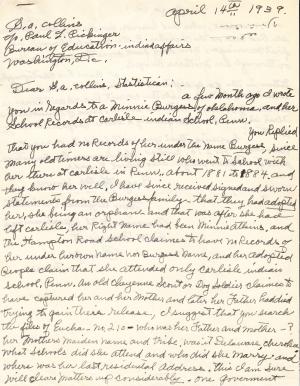 April 14th 1939.
G.A. Collins
c/o Paul L. Fickinger
Bureau of Education-indian affairs
Washington, D.C.
Dear G.A. Collins, Statistician:
a few Month ago I wrote
you in regards to a Minnie Burgess of oklahoma, and her
School Records at Carlisle indian School, Penn.
You Replied
that you had no Records of her under the Name Burgess, since
Many old timers are living still who went to School with
her there at Carlisle in Penn. about 1881 to 1884. and
they know her well. I have since received signed and sworn
statements from the Burgess family that they had adopted
her, she being an orphan and that was after she had
left Carlisle, her Right Name had been Minnie Atkins, and
the Hampton Road school claimes to have no Records of
her under her own name nor Burgess Name, and her adopted
People claim that she attended only Carlisle indian
School, Penn. An old Cheyenne Scout or Dog Soldier claimes to
have captured her and her Mother and later her Father had died
trying to gain there release, I suggest that you search
the files of Euchee No. 210 - who was her Father and Mother -?
her Mothers Maiden name and tribe, was it Delaware, Cherokee
what Schools did she attend and who did she Marry - and
where was her last residential address. this I am sure
will clear matters up considerable. one Government